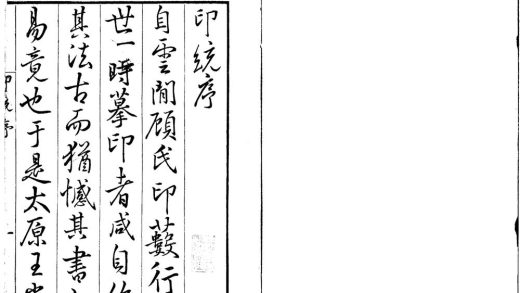 印統序
自雲間顧氏印藪行
世一時摹印者咸自
其法古而猶憾其書
易竟也于是太原王
印統序
一